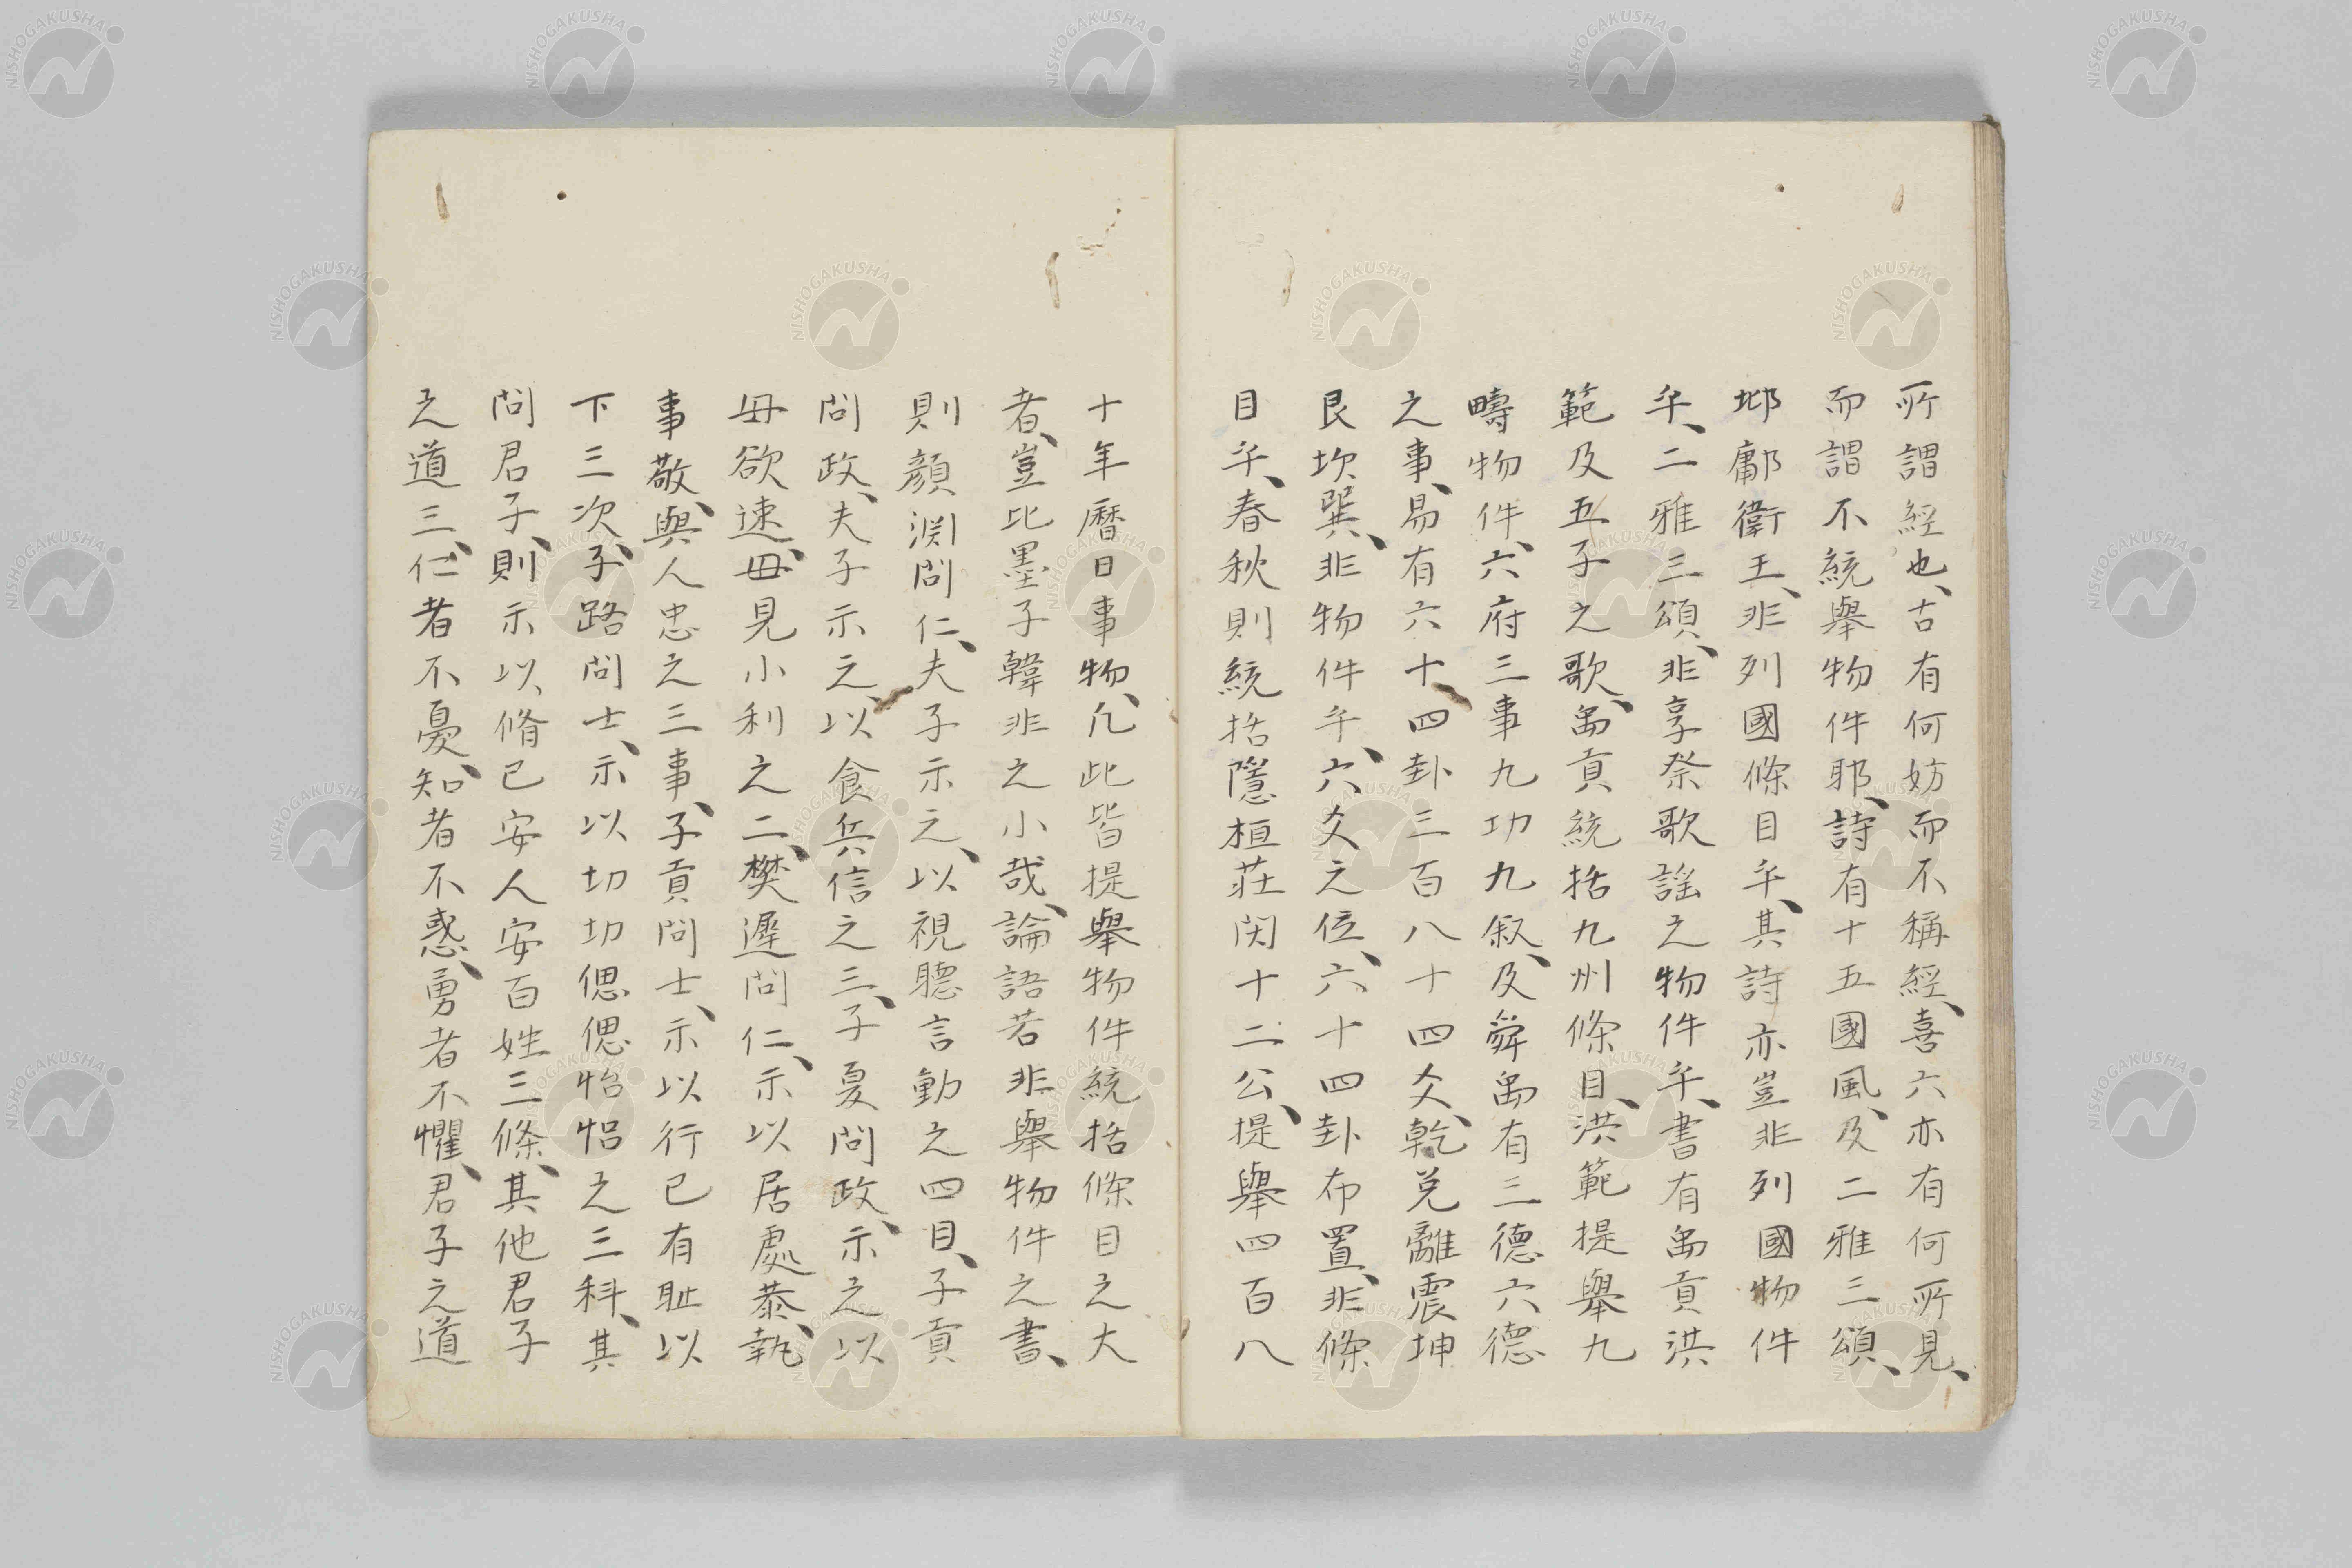 所謂經也、古有何妨而不稱經、喜六亦有何所見、
而謂不統舉物件耶、詩有十五國風、及二雅三頌、
邶鄘衛王、非列國條目乎、其詩亦豈非列國物件
乎、二雅三頌、非享祭歌謡之物件乎、書有禹貢洪
範及五子之歌、禹貢統括九州條目、洪範提舉九
疇物件、六府三事九功九叙、及舜禹有三德六德
之事、易有六十四卦三百八十四爻、乾兌離震坤
艮坎巽、非物件乎、六爻之位、六十四卦布置、非條
目乎、春秋則統括隱桓莊閔十二公、提舉四百八
十年曆日事物、凢此皆提舉物件統括條目之大
者、豈比墨子韓非之小哉、論語若非舉物件之書、
則顏淵問仁、夫子示之、以視聽言動之四目、子貢
問政、夫子示之、以食兵信之三、子夏問政、示之以
毋欲速、毋見小利之二、樊遲問仁、示以居處恭、執
事敬、與人忠之三事、子貢問士、示以行己有耻以
下三次、子路問士、示以切切偲偲怡怡之三科、其
問君子、則示以、脩己安人安百姓三條、其他君子
之道三、仁者不憂、知者不惑、勇者不懼、君子之道
NISHOGAKUSHA